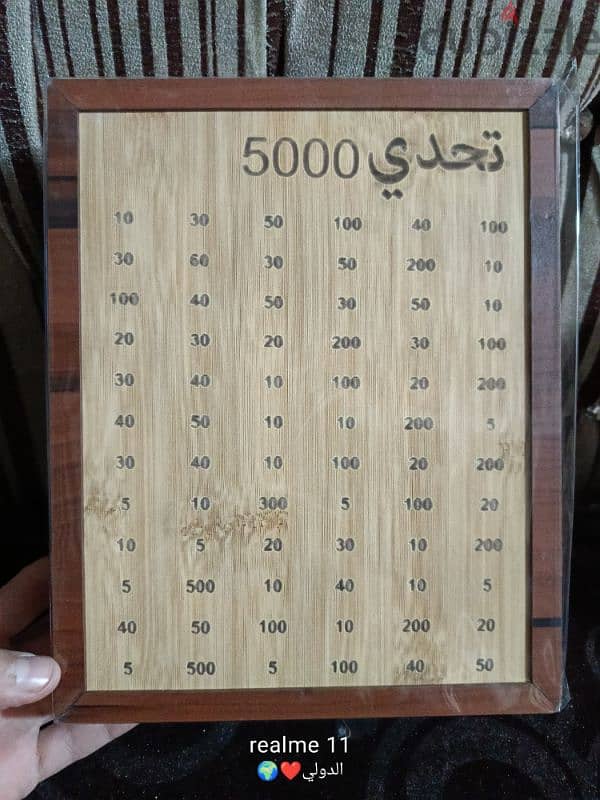 dubizzle
تحدي 5000
10 30 50 100 40 100
30 60 30 50 200 10
100 40 50 30 50 10
20 30 20 200 30 100
30 40 10 100 20 200
40 50 10 10 200 5
30 40 10 100 20 200
5 10 300 5 100 20
10 5 20 30 10 200
5 500 10 40 10 5
40 50 100 10 200 20
5 500 5 100 40 50
realme 11
الدولي❤️🌍